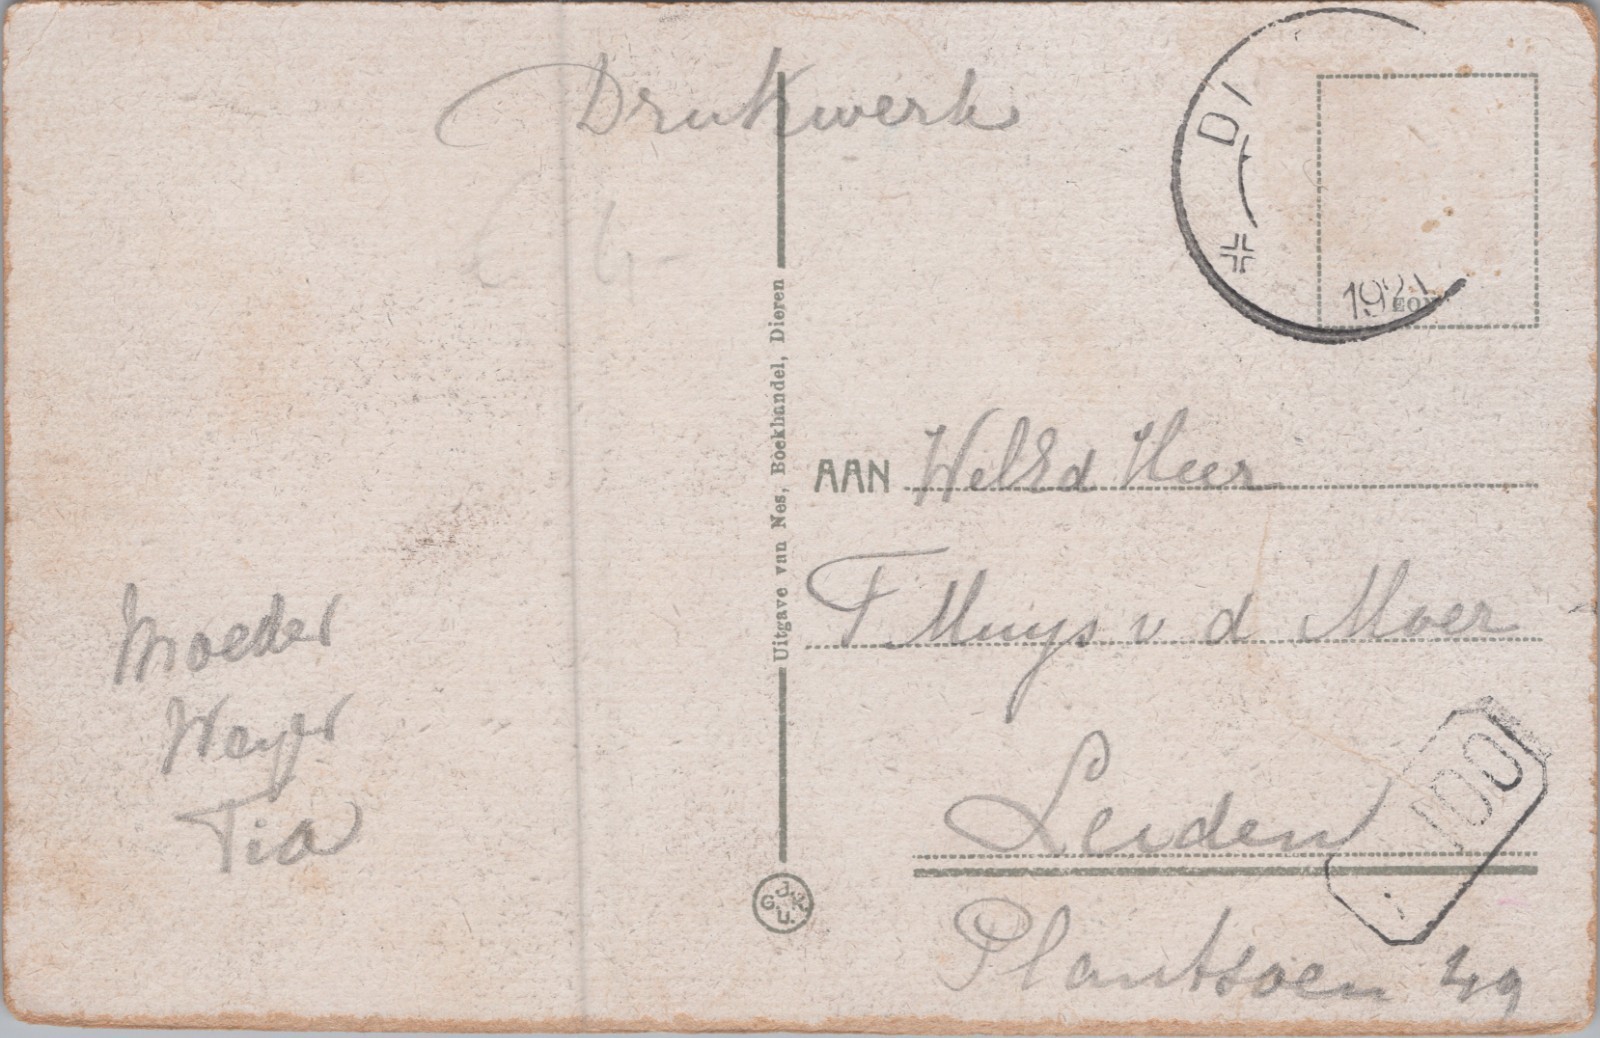 Drukwerk
DI
1921
Uitgave van Nes, Boekhandel, Dieren
AAN WelEd Heer
F Muys v d Moer
Leiden
Plantsoen 49
Moeder
Weyer
Tia
J. K. U. G.